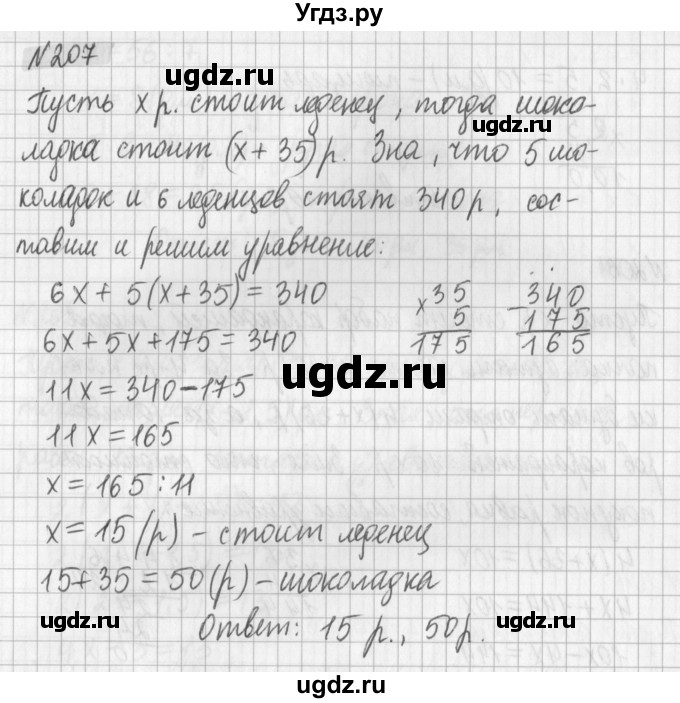 Угдз.ру
№207
Пусть x р. стоит леденец, тогда шоко-
ugdz.ru
ладка стоит (x + 35) р. Зна, что 5 шо-
коладок и 6 леденцов стоят 340 р, сос-
тавим и решим уравнение:
6x + 5(x + 35) = 340
6x + 5x + 175 = 340
11x = 340 - 175
11x = 165
x = 165 : 11
x = 15 (р) - стоит леденец
15 + 35 = 50 (р) - шоколадка
Ответ: 15 р., 50 р.
x 35
5
175
- 340
175
165
ugdz.ru
ugdz.ru
ugdz.ru
ugdz.ru
ugdz.ru